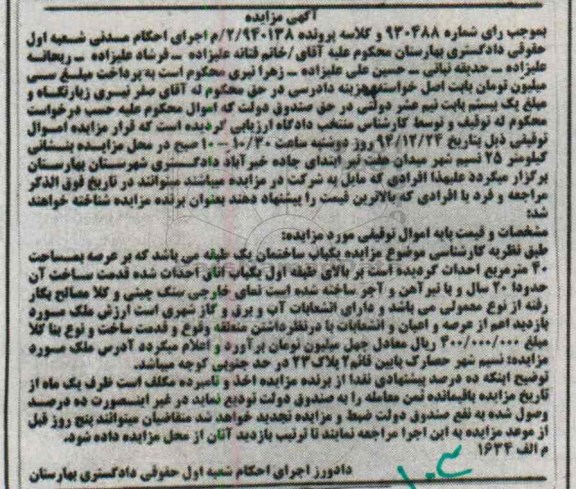 آگهی مزایده
بموجب رای شماره ۹۳۰۴۸۸ و کلاسه پرونده ۲/۹۴۰۱۳۸/م اجرای احکام مدنی شعبه اول
حقوقی دادگستری بهارستان محکوم علیه آقای/خانم فتانه علیزاده ــ فرشاد علیزاده ــ ریحانه
علیزاده ــ حدیقه نباتی ــ حسین علی علیزاده ــ زهرا نیری محکوم است به پرداخت مبلغ سی
میلیون تومان بابت اصل خواسته هزینه دادرسی در حق محکوم له آقای صفر نیری زیارتگاه و
مبلغ یک بیستم بابت نیم عشر دولتی در حق صندوق دولت که اموال محکوم علیه حسب درخواست
محکوم له توقیف و توسط کارشناس منتخب دادگاه ارزیابی گردیده است که قرار مزایده اموال
توقیفی ذیل بتاریخ ۹۴/۱۲/۲۴ روز دوشنبه ساعت ۱۰/۳۰ – ۱۰ صبح در محل مزایده بنشانی
کیلومتر ۲۵ نسیم شهر میدان هفت تیر ابتدای جاده خیرآباد دادگستری شهرستان بهارستان
برگزار میگردد علیهذا افرادی که مایل به شرکت در مزایده میباشند میتوانند در تاریخ فوق الذکر
مراجعه و فرد یا افرادی که بالاترین قیمت را پیشنهاد دهند بعنوان برنده مزایده شناخته خواهند
شد:
مشخصات و قیمت پایه اموال توقیفی مورد مزایده:
طبق نظریه کارشناسی موضوع مزایده یکباب ساختمان یک طبقه می باشد که بر عرصه بمساحت
۴۰ مترمربع احداث گردیده است بر بالای طبقه اول یکباب اتاق احداث شده قدمت ساخت آن
حدودا ۲۰ سال و با تیرآهن و آجر ساخته شده است نمای خارجی سنگ چینی و کلا مصالح بکار
رفته از نوع معمولی می باشد و دارای انشعابات آب و برق و گاز شهری است ارزش ملک مسوره
بازدید اعم از عرصه و اعیان و انشعابات با درنظرداشتن منطقه وقوع و قدمت ساخت و نوع بنا کلا
مبلغ ۴۰۰/۰۰۰/۰۰۰ ریال معادل چهل میلیون تومان برآورد و اعلام میگردد آدرس ملک مسوره
مزایده: نسیم شهر حصارک پایین قائم۲ پلاک۲۳ در حد جنوبی کوچه میباشد.
توضیح اینکه ده درصد پیشنهادی نقدا از برنده مزایده اخذ و نامبرده مکلف است ظرف یک ماه از
تاریخ مزایده باقیمانده ثمن معامله را به صندوق دولت تودیع نماید در غیر اینصورت ده درصد
وصول شده به نفع صندوق دولت ضبط و مزایده تجدید خواهد شد متقاضیان میتوانند پنج روز قبل
از موعد مزایده به این اجرا مراجعه نمایند تا ترتیب بازدید آنان از محل مزایده داده شود.
م الف ۱۶۳۴
دادورز اجرای احکام شعبه اول حقوقی دادگستری بهارستان